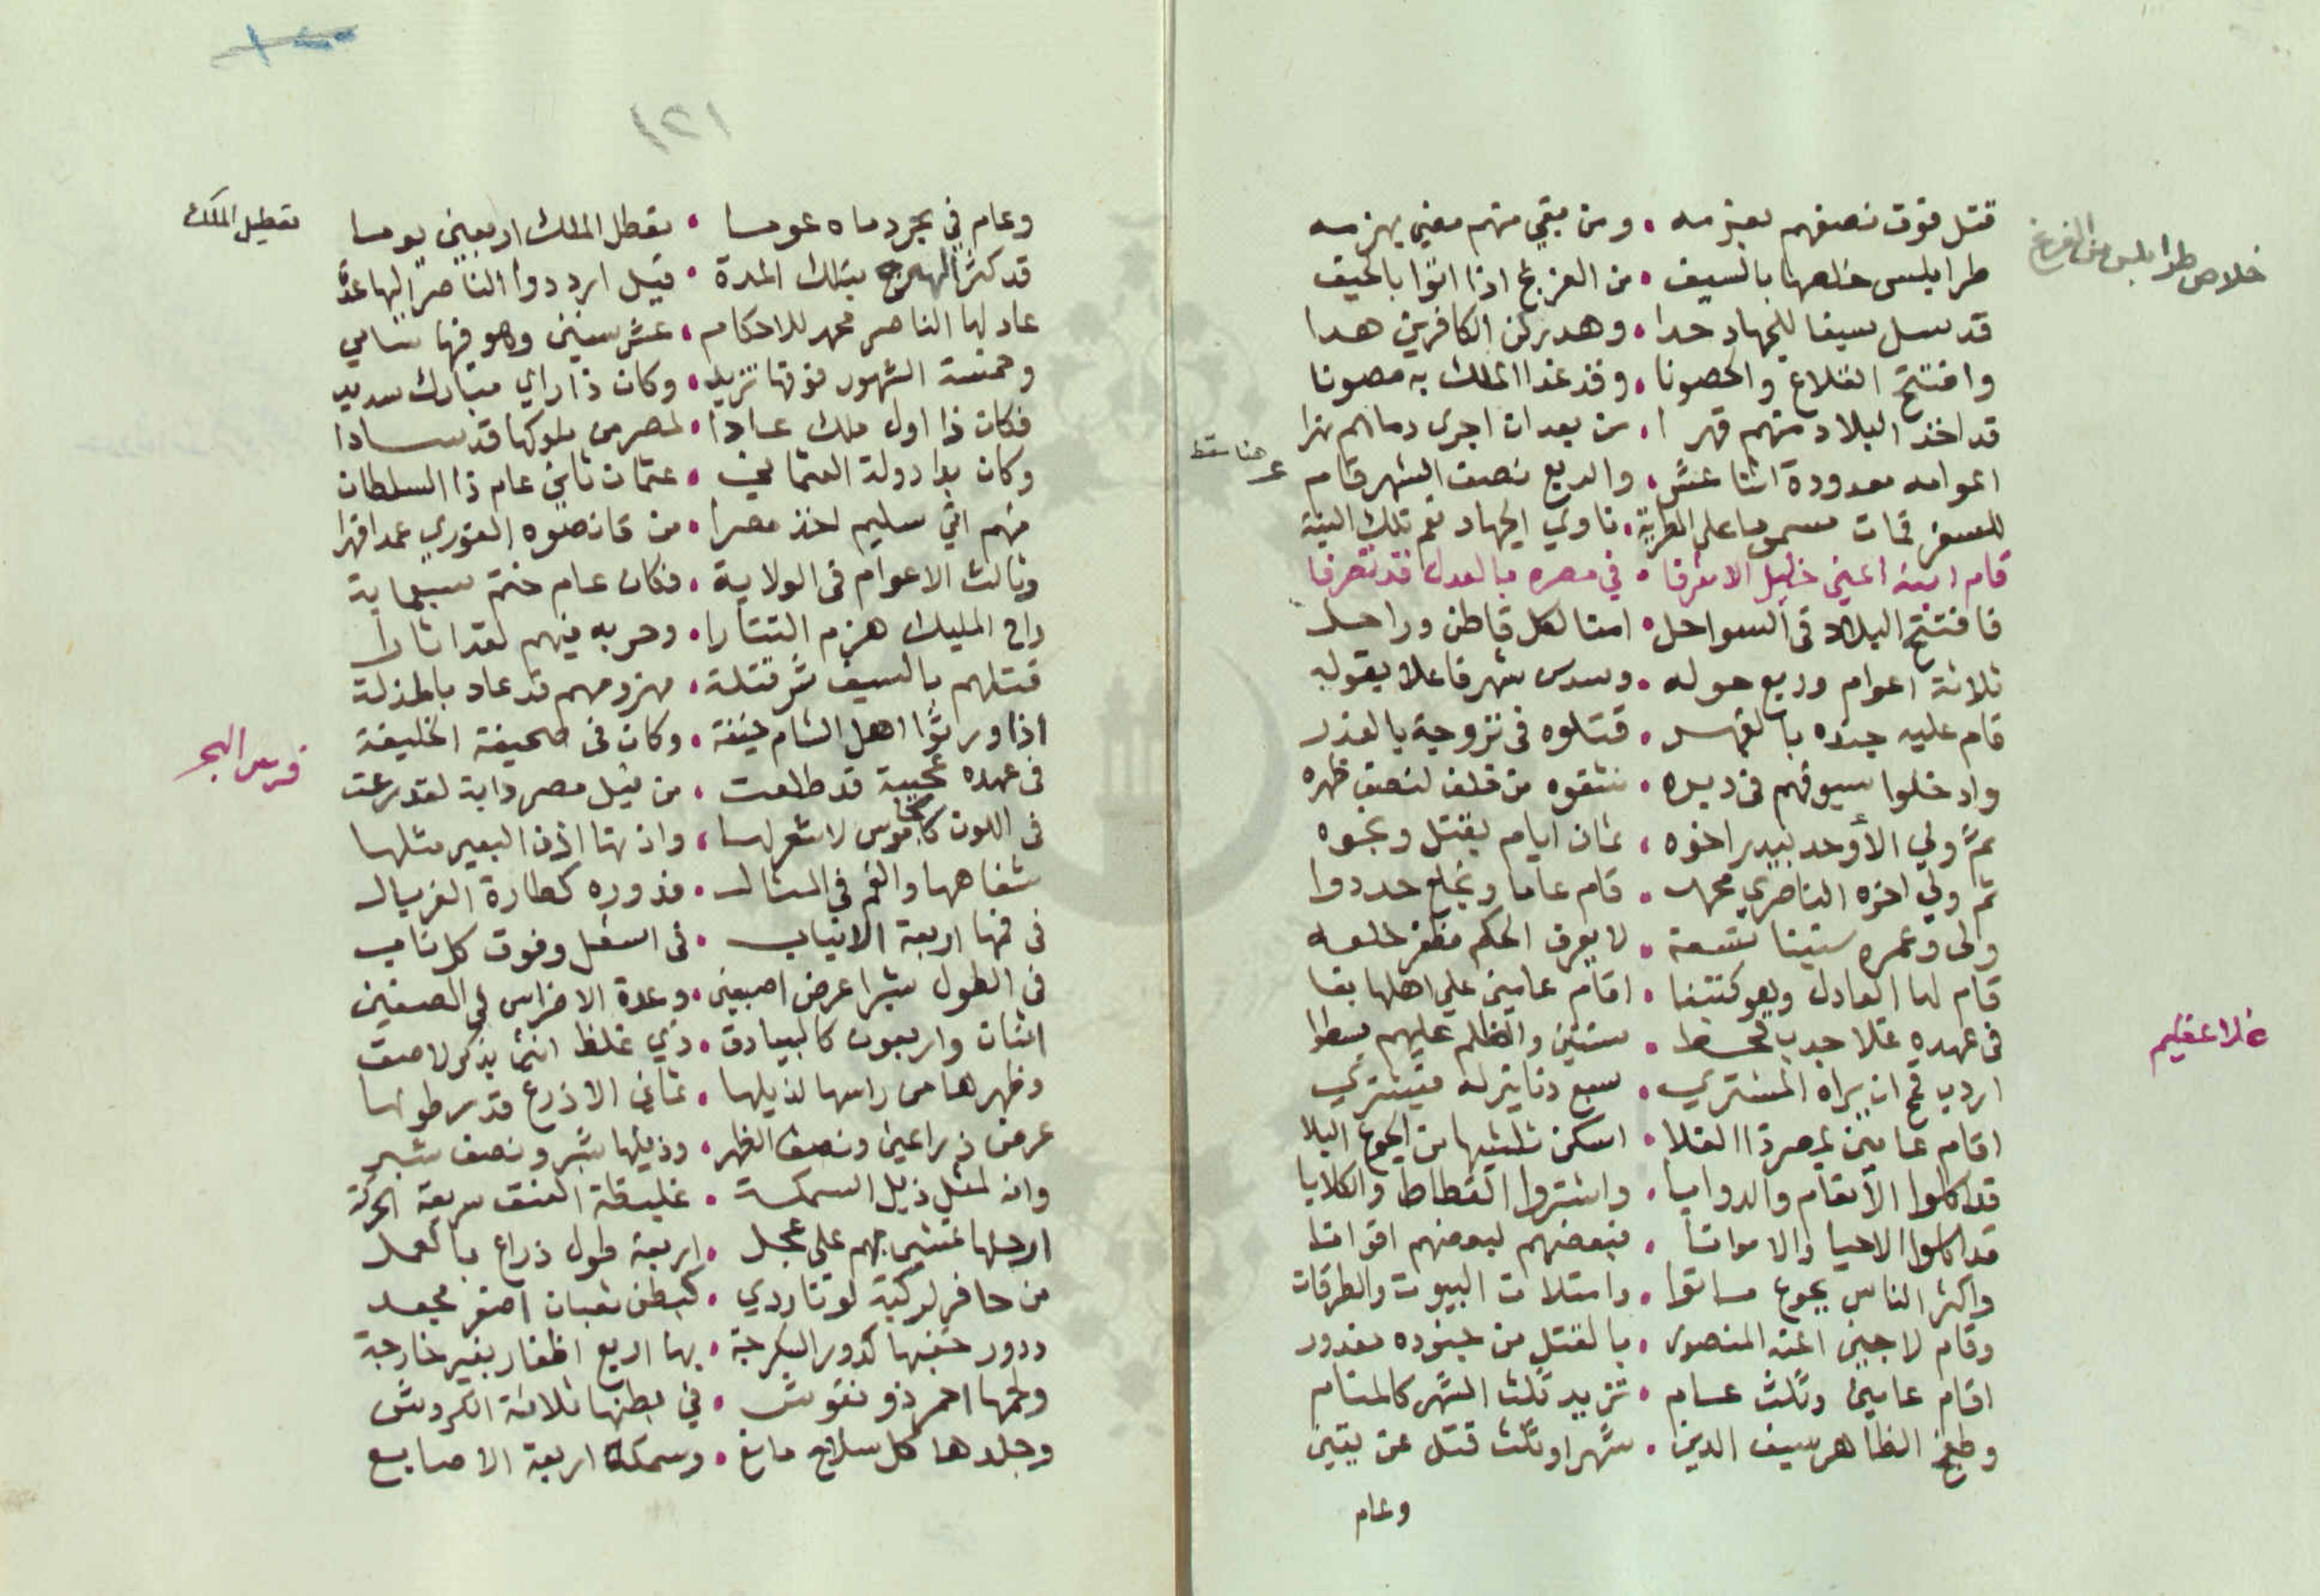 قتل فوق نصفهم بعزمه • ومن بقي منهم مضي بهزمه
خلاص طرابلس من الفرنج
طرابلس خلصها بالسيف • من الفرنج اذا اتوا بالحيف
قد سل سيفا للجهاد حدا • وهد ركن الكافرين هدا
وافتتح القلاع والحصونا • وقد غدا الملك به مصونا
قد اخذ البلاد منهم قهرا • من بعد ان اجرى دماهم نهرا
اعوامه معدودة اثنا عشر • والربع نصف الشهر قام
للسفر فمات مسموما على الطرية • ناوي الجهاد نعم تلك النية
قام ابنه اعني خليل الاشرفا • في مصره بالعدل قد تصرفا
فافتتح البلاد في السواحل • امنا لكل قاطن وراحل
ثلاثة اعوام وربع حوله • وسدس شهر فاعلا بقوله
قام عليه جنده بالقهر • قتلوه في تروجة بالغدر
وادخلوا سيوفهم في دبره • شقوه من خلف لنصف ظهره
ثم ولي الأوحد بيدر اخوه • ثمان ايام بقتل ونجوه
ثم ولي اخوه الناصري محمد • قام عاما وبخلع حددوا
ولى وعمره سنينا تسعة • لا يعرف الحكم فظفر خلعه
قام لها العادل وهو كتبغا • اقام عامين علي اهلها بغا
في عهده غلا جدب قحط • سنتين والظلم عليهم بسطا
غلاء عظيم
اردب قمح ان يراه المشتري • سبع دنانير له فيشتري
اقام عامين بمصر ذا الغلا • اسكن ثلثيها من الجوع البلا
قد اكلوا الأنعام والدوابا • واشتروا القطاط والكلابا
قد اكلوا الاحيا والامواتا • فبعضهم لبعضهم اقواتا
واكثر الناس بجوع ماتوا • وامتلات البيوت والطرقات
وقام لاجين المنصور • بالقتل من جنوده مغدور
اقام عامين وثلث عام • تزيد ثلث الشهر كالمنام
وطغج الظاهر سيف الدين • شهرا وثلث قتل عن يقين
وعام
١٢١
وعام في بحر دماه عوما • تعطل الملك اربعين يوما
تعطيل الملك
قد كثر الهرج بتلك المدة • قيل ارددوا الناصر اليها عده
عاد لها الناصر محمد للاحكام • عشر سنين وهو فيها سامي
وخمسة الشهور فوقها تزيد • وكان ذا راي مبارك سديد
فكان ذا اول ملك عادا • لمصر من ملوكها قد سادا
وكان بدا دولة العثماني • عثمان ثاني عام ذا السلطان
منهم اتي سليم اخذ مصرا • من قانصوه الغوري عمدا قهرا
وثالث الاعوام في الولاية • فكان عام ختم سبعماية
راح المليك هزم التتارا • وحربه فيهم لقد اثارا
قتلهم بالسيف شر قتلة • مهزومهم قد عاد بالمذلة
في عهده عجيبة قد طلعت • من نيل مصر دابة لقد رعت
فرس البحر
في اللون كالجاموس لا شعر لها • واذنها اذن البعير مثلها
شفاهها والفم في المثال • فدوره كطارة الغربال
في فمها اربعة الانياب • في اسفل وفوق كل ناب
في الطول شبرا عرض اصبعين • وعدة الاضراس في الصفين
اثنان واربعون كالبيادق • ذي غلظ
وظهرها من راسها لذيلها • ثماني الاذرع قدر طولها
عرض ذراعين ونصف الظهر • وذيلها شبر ونصف شبر
وانه لمثل ذيل السمكة • غليظة العنق سريعة الحركة
ارجلها تمشي بهم على عجل • اربعة طول ذراع بالعمل
من حافر لركبة • كبطن ثعبان اصفر مجعد
ودور خفها كدور السكرجة • بها اربع اظفار بغير خارجة
ولحمها احمر ذو نقوش • في بطنها ثلاثة الكروش
وجلدها كل سلاح مانع • وسمكه اربعة الاصابع